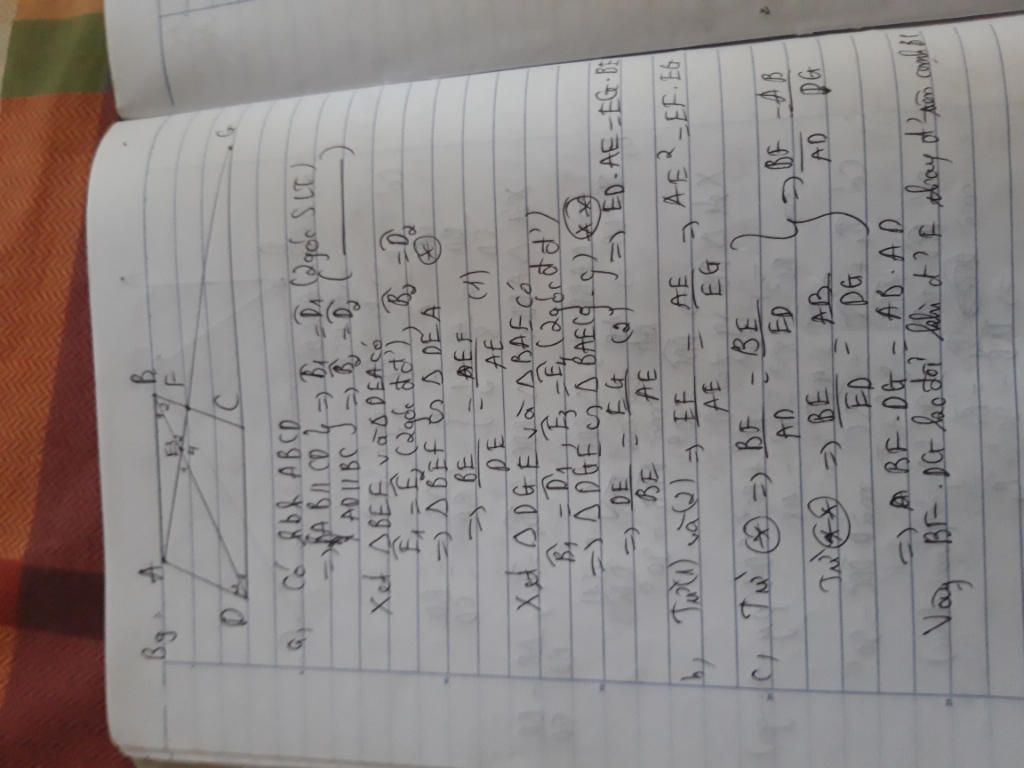 Bg:
A B
E F
D C G
a, Có hbh ABCD
=> AB // CD } => B̂1 = D̂1 (2 góc SLT)
AD // BC } => B̂2 = D̂2 ( )
Xét ΔBEF và ΔDEA có
Ê1 = Ê2 (2 góc đđ') B̂2 = D̂2
=> ΔBEF ∽ ΔDEA (*)
=> BE/DE = EF/AE (1)
Xét ΔDGE và ΔBAE có
B̂1 = D̂1, Ê3 = Ê4 (2 góc đđ')
=> ΔDGE ∽ ΔBAE (g.g) (**)
=> DE/BE = EG/AE (2) => ED.AE = EG.BE
b, Từ (1) và (2) => EF/AE = AE/EG => AE² = EF.EG
c, Từ (*) => BF/AD = BE/ED } => BF/AD = AB/DG
Từ (**) => BE/ED = AB/DG
=> BF.DG = AB.AD
Vậy BF.DG ko đổi khi đ' F thay đ' trên cạnh BC